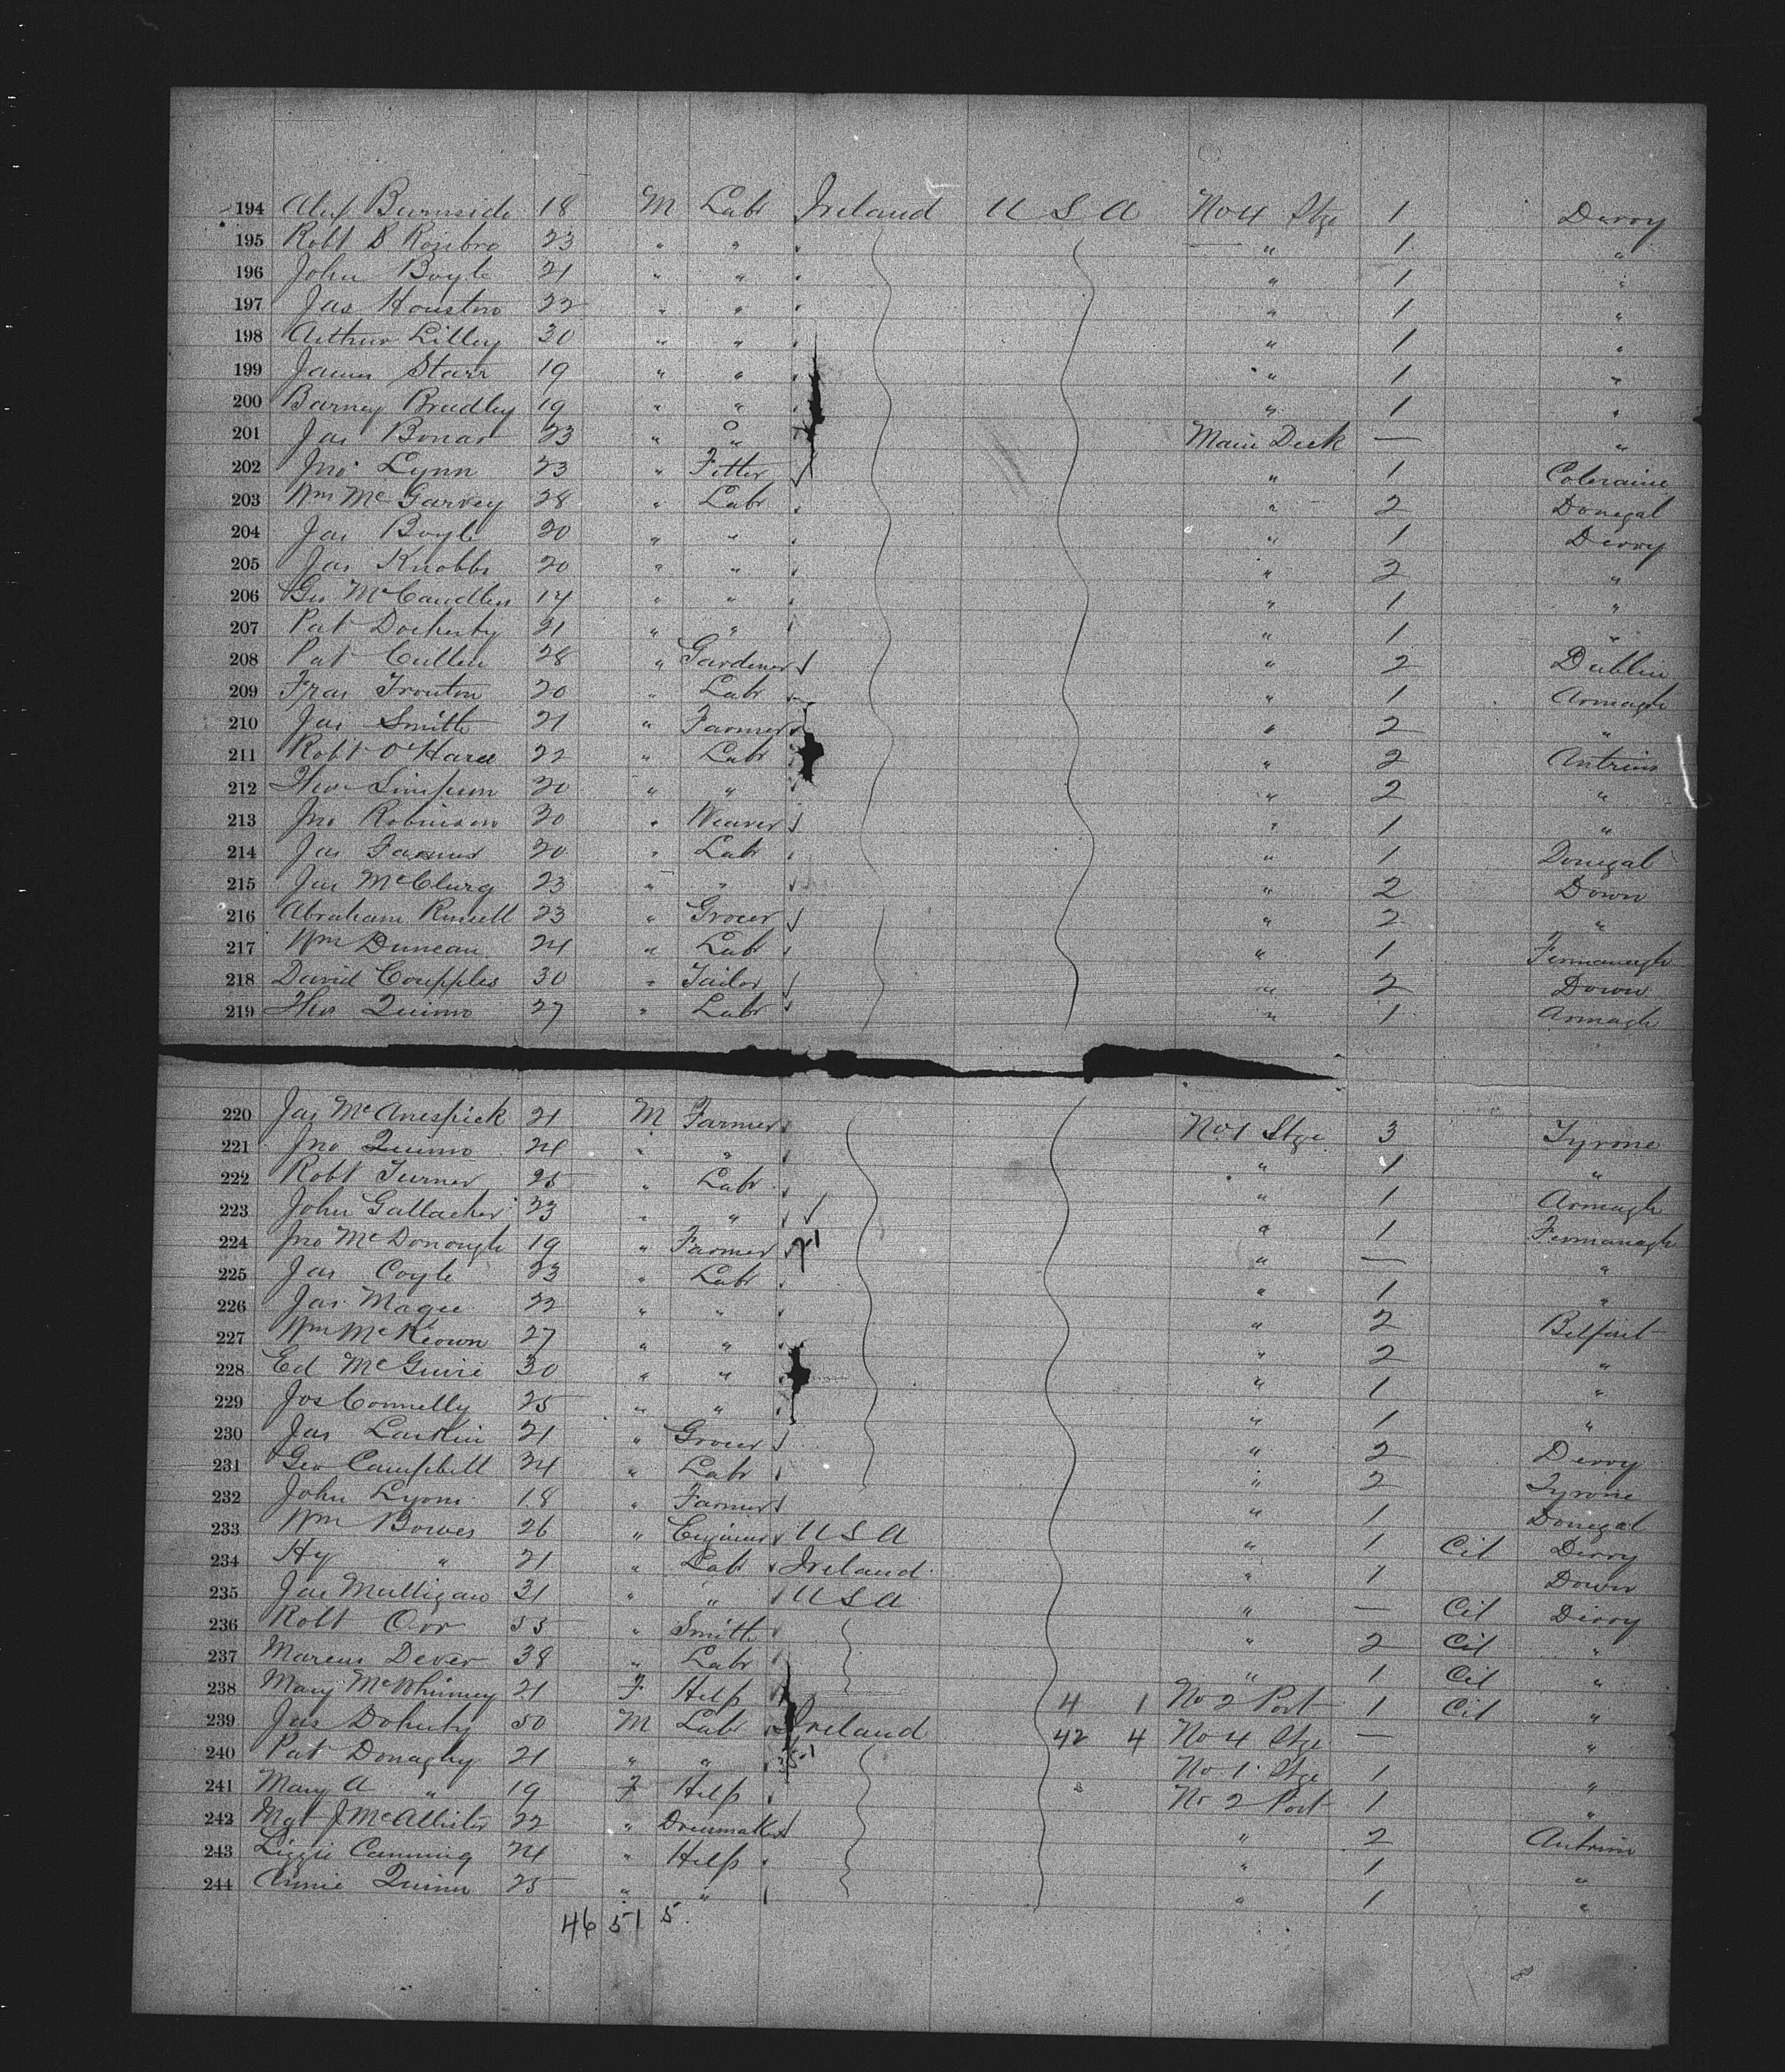 194 Alex Burnside 18 M Labr Ireland U S A No 4 Stge 1 Derry
195 Robt B Rosebro 23 " " " " 1 "
196 John Boyle 21 " " " " 1 "
197 Jas Houston 22 " " " " 1 "
198 Arthur Lilley 30 " " " " 1 "
199 James Starr 19 " " " " 1 "
200 Barney Bradley 19 " " " " 1 "
201 Jas Bonar 23 " " " Main Deck — "
202 Jno Lynn 23 " Fitter " 1 Coleraine
203 Wm McGarvey 28 " Labr " " 2 Donegal
204 Jas Boyle 20 " " " " 1 Derry
205 Jas Knobbs 20 " " " " 2 "
206 Geo McCandless 17 " " " " 1 "
207 Pat Docherty 21 " " " " 1 "
208 Pat Cullen 28 " Gardener " 2 Dublin
209 Fras Trouton 20 " Labr " " 1 Armagh
210 Jas Smith 21 " Farmer " 2 "
211 Robt O'Hara 22 " Labr " 2 Antrim
212 Thos Simpson 20 " " " " 2 "
213 Jno Robinson 20 " Weaver " 1 "
214 Jas Farmer 20 " Labr " " 1 Donegal
215 Jas McClurg 23 " " " 2 Down
216 Abraham Russell 23 " Grocer " 2 "
217 Wm Duncan 24 " Labr " " 1 Fermanagh
218 David Coupples 30 " Tailor " 2 Down
219 Thos Quinn 27 " Labr " " 1 Armagh
220 Jas McAnespick 21 M Farmer No 1 Stge 3 Tyrone
221 Jno Quinn 24 " " " " 1 "
222 Robt Turner 25 " Labr " " 1 Armagh
223 John Gallacher 23 " " " " 1 Fermanagh
224 Jno McDonough 19 " Farmer " — "
225 Jas Coyle 23 " Labr " " 1 "
226 Jas Magee 22 " " " " 2 Belfast
227 Wm McKeown 27 " " " " 2 "
228 Ed McGuire 30 " " " " 1 "
229 Jos Connelly 25 " " " " 1 "
230 Jas Larkin 21 " Grocer " 2 Derry
231 Geo Campbell 24 " Labr " " 2 Tyrone
232 John Lyons 18 " Farmer " 1 Donegal
233 Wm Bowes 26 " Engineer U S A " 1 Cit Derry
234 Hy " 21 " Labr Ireland " 1 Down
235 Jas Mulligan 31 " " U S A " — Cit Derry
236 Robt Orr 55 " Smith " 2 Cit "
237 Marcus Dever 38 " Labr " 1 Cit "
238 Mary McWhinney 21 F Help 4 1 No 2 Port 1 Cit "
239 Jas Doherty 50 M Labr Ireland 42 4 No 4 Stge — "
240 Pat Donaghy 21 " " No 1 Stge 1 "
241 Mary A " 19 F Help No 2 Port 1 "
242 Mgt J McAllister 22 " Dressmaker " 2 Antrim
243 Lizzie Canning 24 " Help " 1 "
244 Annie Quinn 25 " " " 1 "
46 51 5